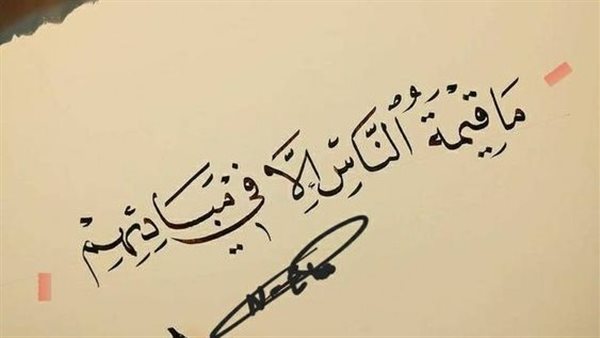 مَا قِيْمَةُ النَّاسِ إِلَّا فِي مَبَادِئِهِمْ